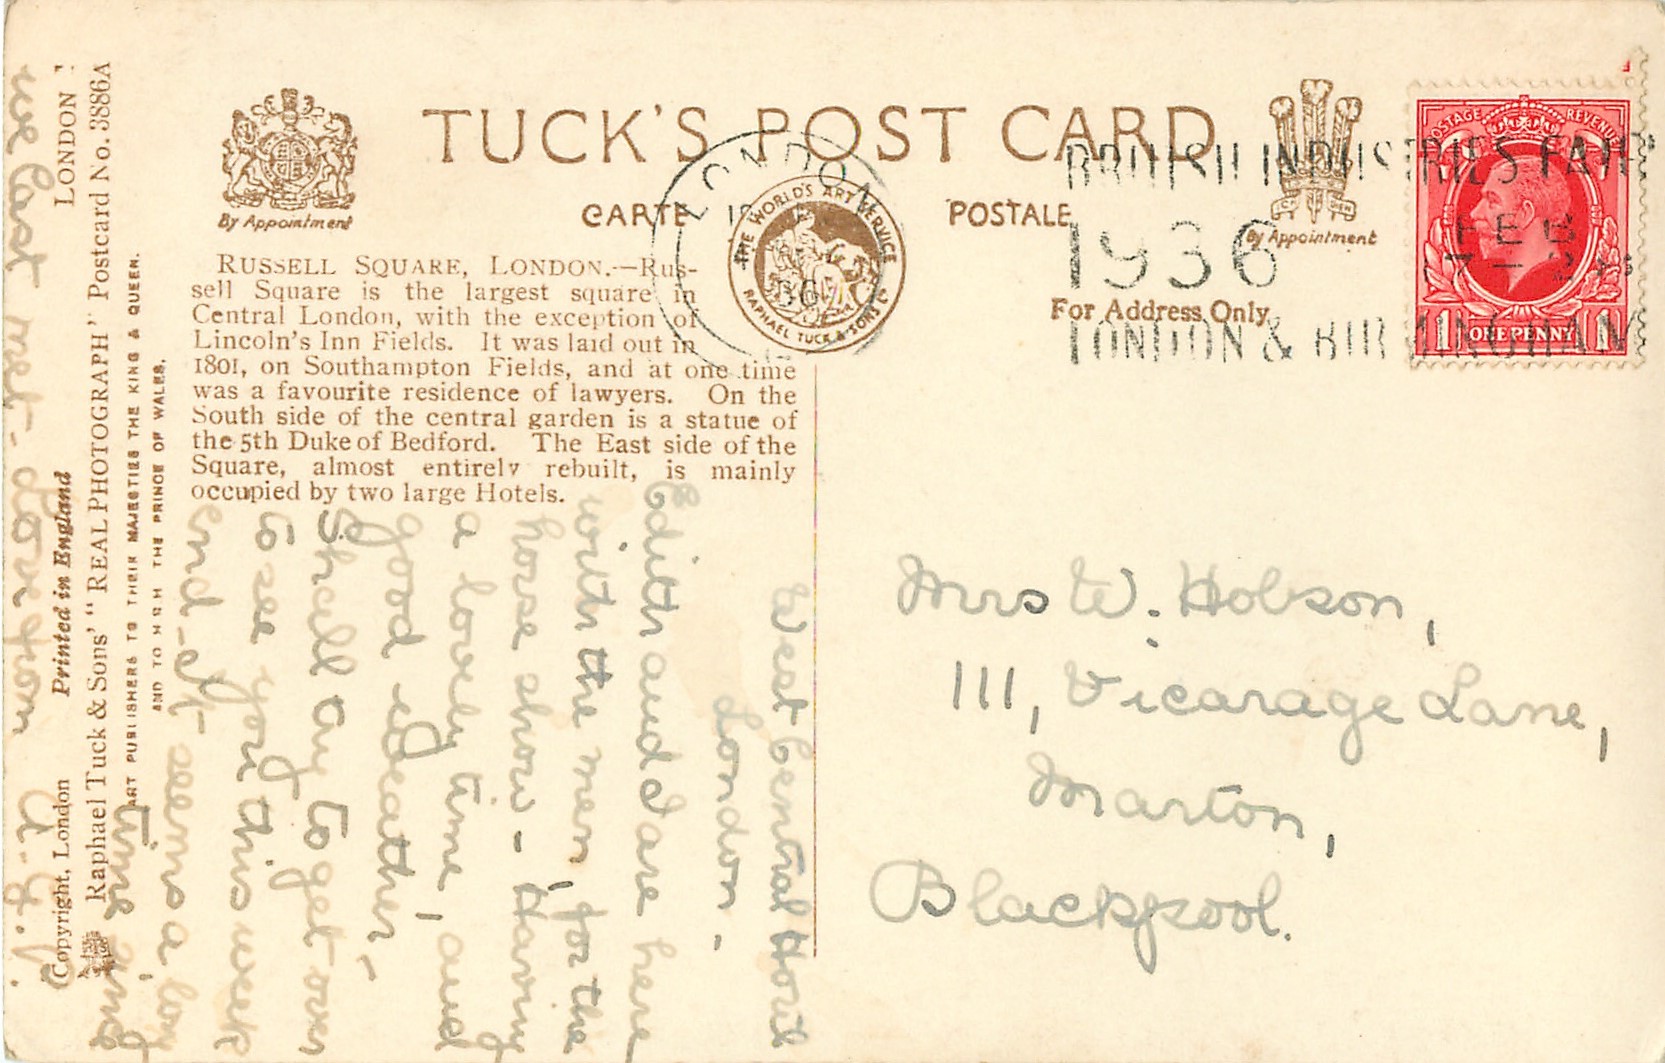 TUCK'S POST CARD
CARTE POSTALE
By Appointment
By Appointment
THE WORLD'S ART SERVICE
RAPHAEL TUCK & SONS LD
For Address Only.
LONDON
BRITISH INDUSTRIES FAIR
1936
FEB
17 - 28
LONDON & BIRMINGHAM
POSTAGE REVENUE
1 ONE PENNY 1
RUSSELL SQUARE, LONDON.—Rus-
sell Square is the largest square in
Central London, with the exception of
Lincoln's Inn Fields. It was laid out in
1801, on Southampton Fields, and at one time
was a favourite residence of lawyers. On the
South side of the central garden is a statue of
the 5th Duke of Bedford. The East side of the
Square, almost entirely rebuilt, is mainly
occupied by two large Hotels.
West Central Hotel
London -
Edith and I are here
with the men, for the
horse show - Having
a lovely time, and
good weather -
Shall try to get over
to see you this week
end - It seems a long
time since
we last met - Love from
Mrs W. Hobson,
111, Vicarage Lane,
Marton,
Blackpool.
(Copyright, London Printed in England LONDON
Raphael Tuck & Sons' "REAL PHOTOGRAPH" Postcard No. 3886A
ART PUBLISHERS TO THEIR MAJESTIES THE KING & QUEEN.
AND TO H R H THE PRINCE OF WALES.